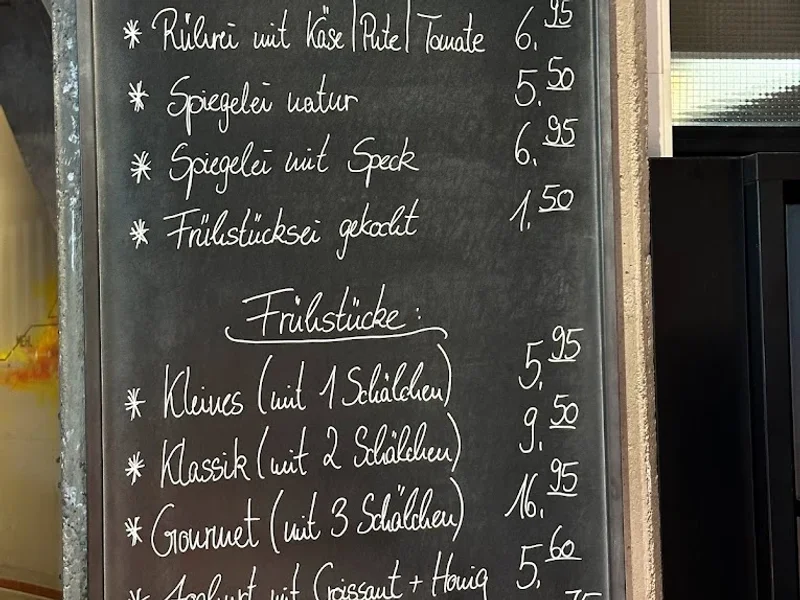 * Rührei mit Käse/Pute/Tomate 6.95
* Spiegelei natur 5.50
* Spiegelei mit Speck 6.95
* Frühstücksei gekocht 1.50
Frühstücke:
* Kleines (mit 1 Schälchen) 5.95
* Klassik (mit 2 Schälchen) 9.50
* Gourmet (mit 3 Schälchen) 16.95
* Joghurt mit Croissant + Honig 5.60